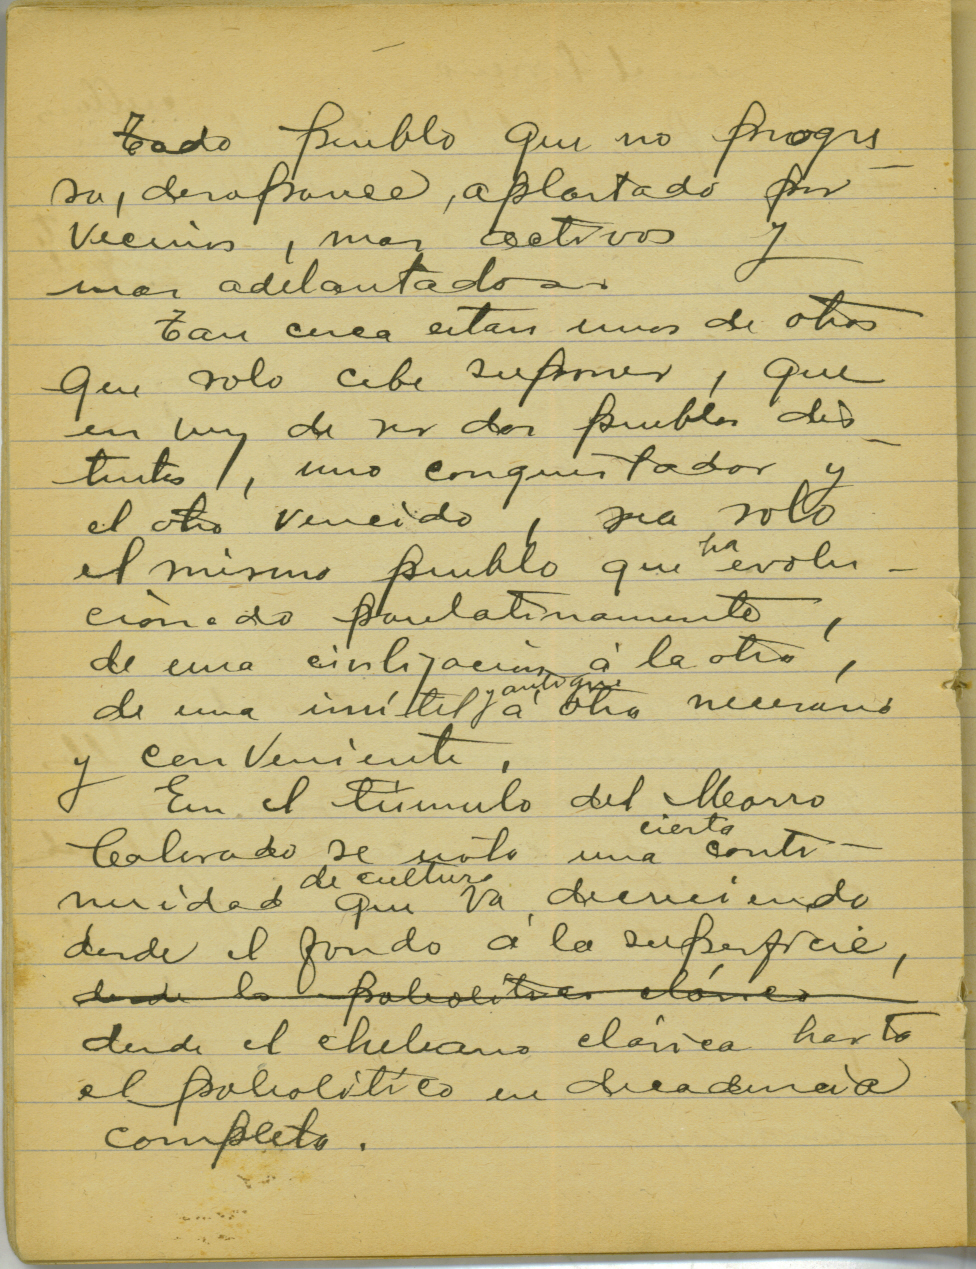 Todo pueblo que no progre
sa, desaparece, aplastado por
vecinos, mas activos y
mas adelantados.
Tan cerca estan unos de otros
que solo cabe suponer, que
en vez de ser dos pueblos dis-
tintos, uno conquistador y
el otro vencido, sea solo
el mismo pueblo que ha evolu-
cionado paulatinamente,
de una civilizacion á la otra,
de una inútil y antigua á otra necesaria
y conveniente.
En el túmulo del Morro
Colorado se nota una cierta conti-
nuidad de cultura que va decreciendo
desde el fondo á la superficie,
desde la paleolitica clásica
desde el cheleano clásica hasta
el paleolitico en decadencia
completa.